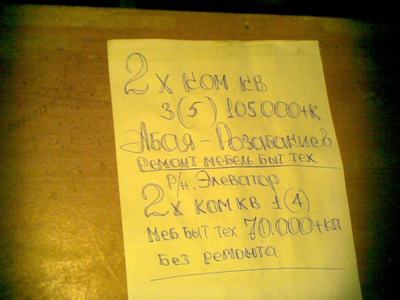 2 х ком кв
3(5) 105000+к
Абая - Розабаниев
ремонт мебель быт тех
р/н. Элеватор
2 х ком кв 1(4)
меб быт тех 70.000+кп
Без ремонта